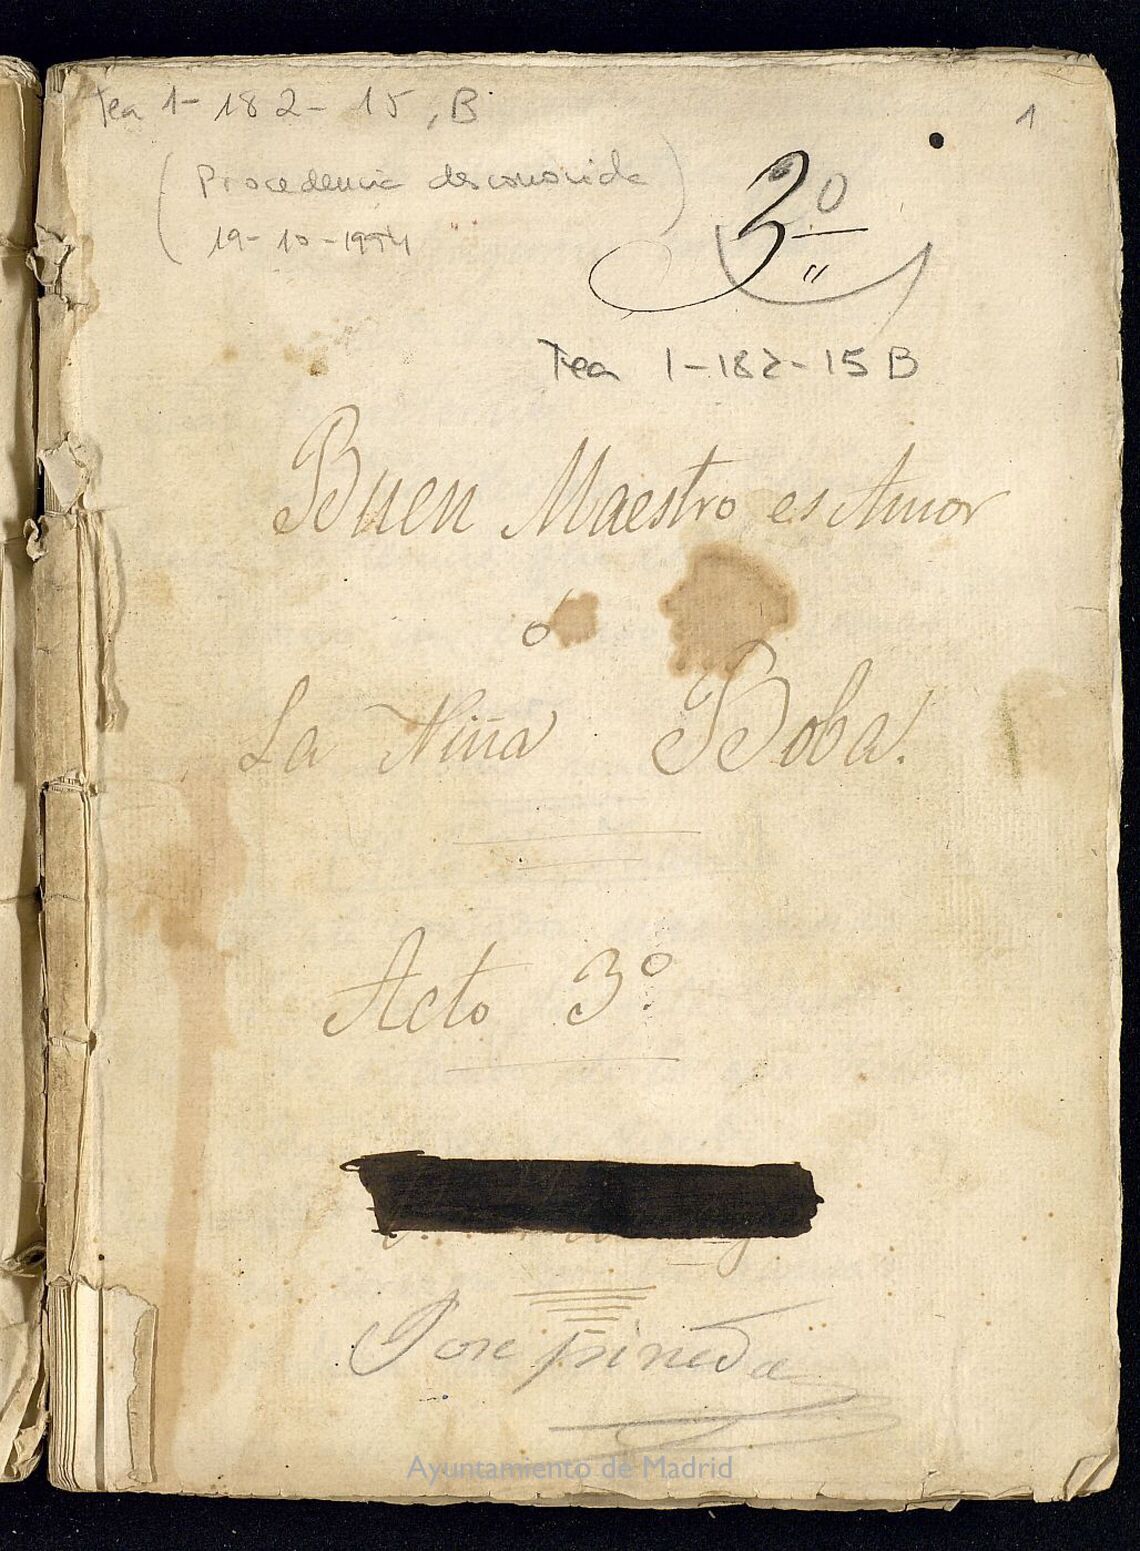 Tea 1-182-15, B
1
(Procedencia desconocida
19-10-1994)
3º
"
Tea 1-182-15 B
Buen Maestro es Amor
ó
La Niña Boba.
Acto 3º
Jose pineda
Ayuntamiento de Madrid